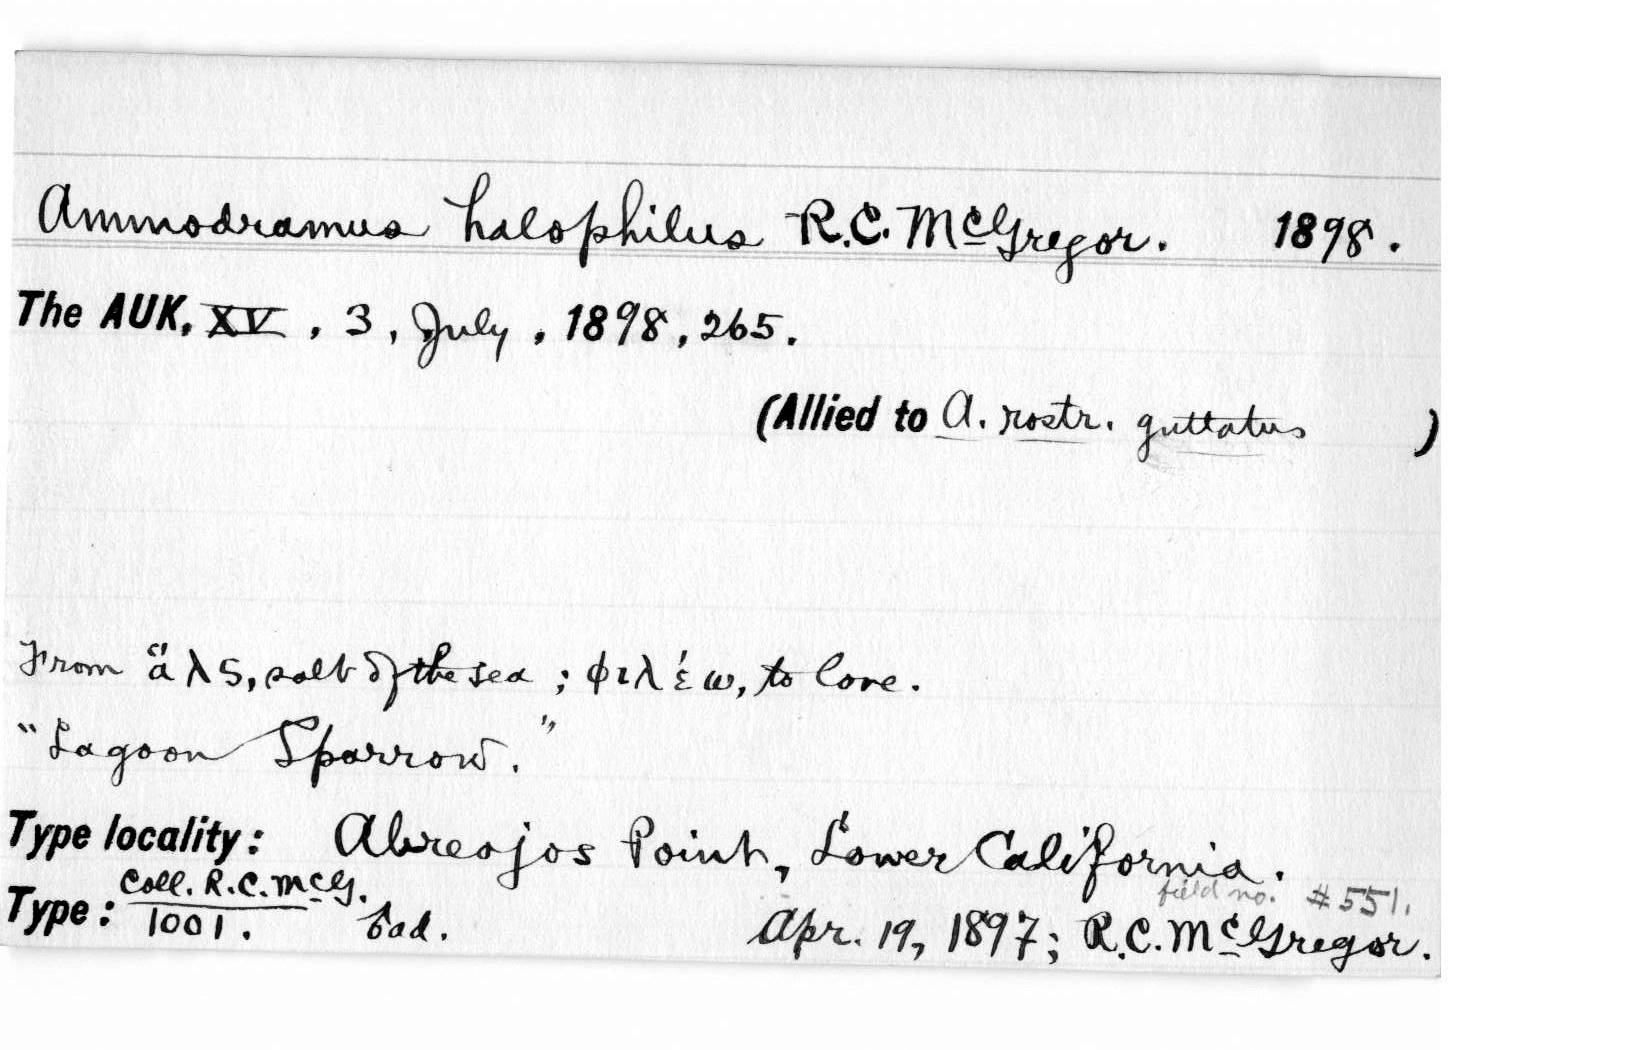 Ammodramus halophilus R.C. McGregor. 1898.
The AUK, XV, 3, July, 1898, 265.
(Allied to A. rostr. guttatus )
From ἅλς, salt of the sea ; φιλέω, to love.
"Lagoon Sparrow."
Type locality: Abreojos Point, Lower California.
Coll. R.C. McG. field no. #551.
Type: 1001. ♂ad. Apr. 19, 1897; R.C. McGregor.